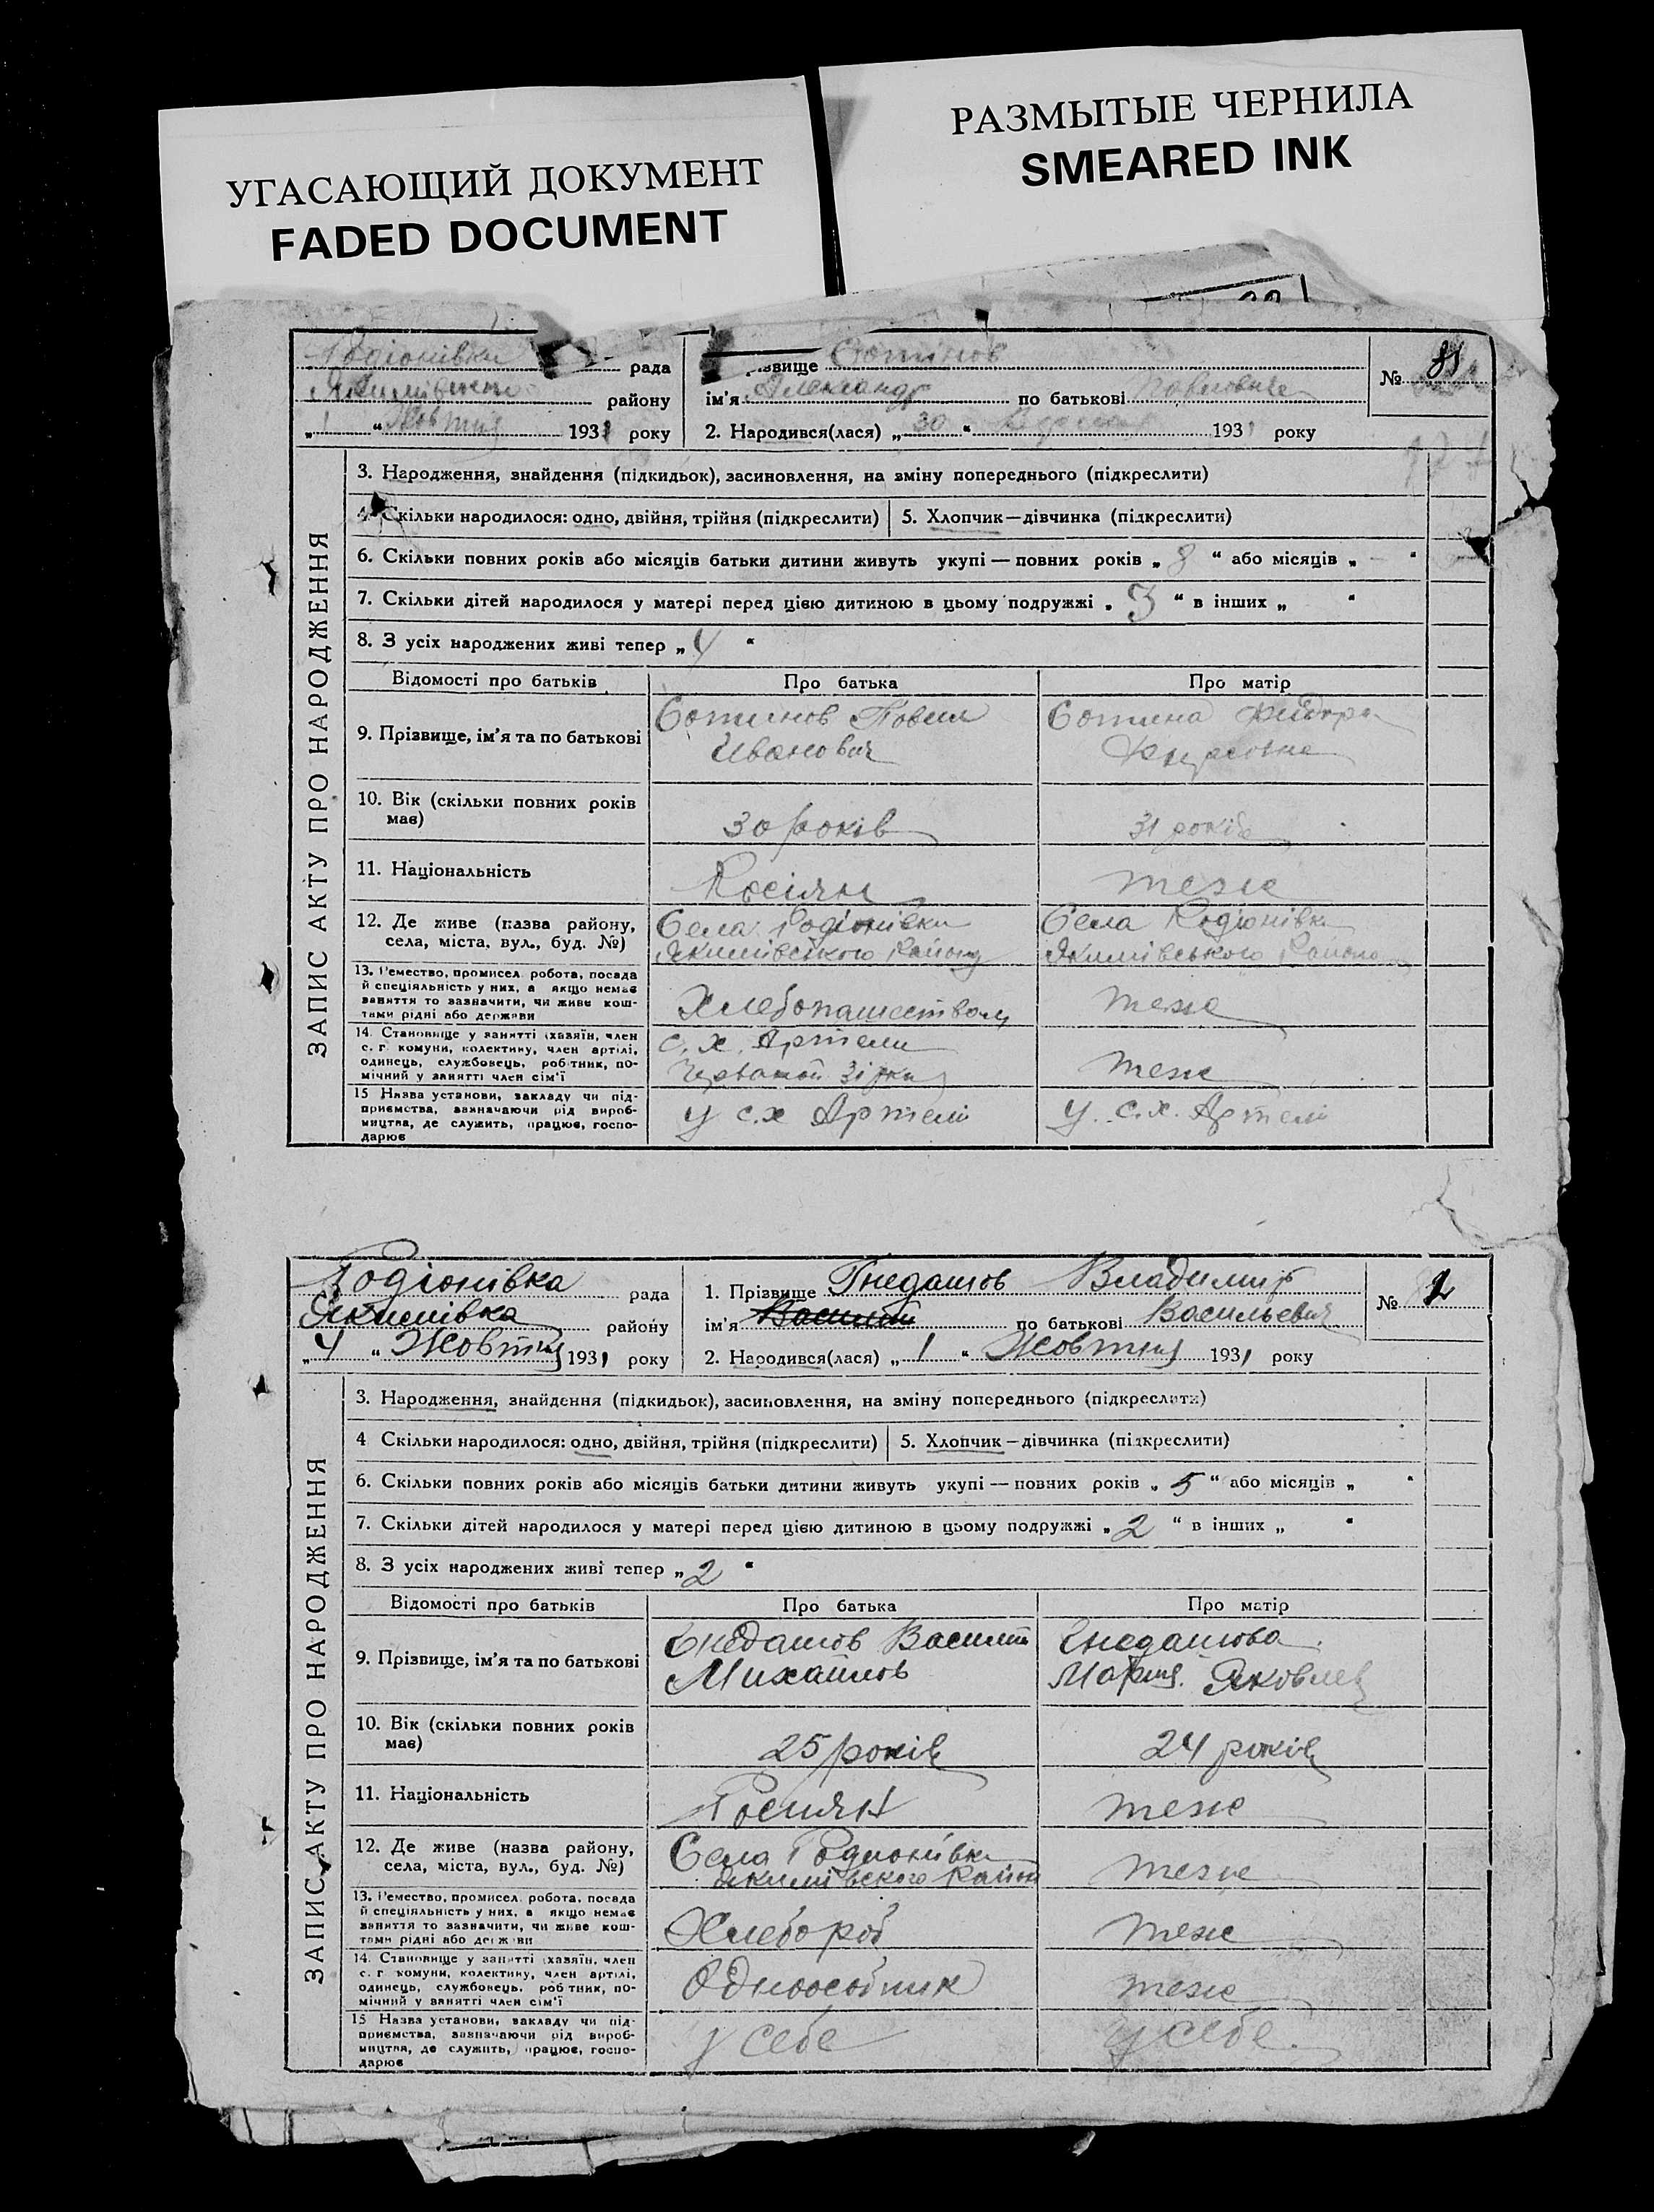 УГАСАЮЩИЙ ДОКУМЕНТ
FADED DOCUMENT
РАЗМЫТЫЕ ЧЕРНИЛА
SMEARED INK
Родіонівки рада
району
„ 1 “ Жовтня 1931 року
ізвище Сотінов
ім'я Александр по батькові Повловиче
2. Народився(лася) „ 30 “ 1931 року
№ 81
ЗАПИС АКТУ ПРО НАРОДЖЕННЯ
3. Народження, знайдення (підкидьок), засиновлення, на зміну попереднього (підкреслити)
4. Скільки народилося: одно, двійня, трійня (підкреслити)
5. Хлопчик—дівчинка (підкреслити)
6. Скільки повних років або місяців батьки дитини живуть укупі — повних років „ 8 “ або місяців „ — “
7. Скільки дітей народилося у матері перед цією дитиною в цьому подружжі „ 3 “ в інших „ “
8. З усіх народжених живі тепер „ 4 “
Відомості про батьків
Про батька
Про матір
9. Прізвище, ім'я та по батькові
Сотинов Повел
Иванович
Сотина
10. Вік (скільки повних років
має)
30 років
31 років
11. Національність
Росіян
теже
12. Де живе (назва району,
села, міста, вул., буд. №)
Села Родіонівки
Якимівського Району
Села Родіонівки
Якимівського Району
13. Ремество, промисел робота, посада
й спеціяльність у них, а якщо немає
заняття то зазначити, чи живе кош-
тами рідні або держави
Хлебопашеством
теже
14. Становище у занятті (хазяїн, член
с. г. комуни, колективу, член артілі,
одинець, службовець, робітник, по-
мічний у занятті член сім'ї
с. х. Артели
Червоной Зірки
теже
15 Назва установи, закладу чи під-
приємства, зазначаючи рід вироб-
ництва, де служить, працює, госпо-
дарює
у с.х Артели
у. с.х. Артели
Родіонівка рада
Якимівка району
„ 4 “ Жовтня 1931 року
1. Прізвище Гнедашов Владимир
ім'я Василий по батькові Васильевич
2. Народився(лася) „ 1 “ Жовтня 1931 року
№ 2
ЗАПИС АКТУ ПРО НАРОДЖЕННЯ
3. Народження, знайдення (підкидьок), засиновлення, на зміну попереднього (підкреслити)
4 Скільки народилося: одно, двійня, трійня (підкреслити)
5. Хлопчик—дівчинка (підкреслити)
6. Скільки повних років або місяців батьки дитини живуть укупі — повних років „ 5 “ або місяців „ “
7. Скільки дітей народилося у матері перед цією дитиною в цьому подружжі „ 2 “ в інших „ “
8. З усіх народжених живі тепер „ 2 “
Відомості про батьків
Про батька
Про матір
9. Прізвище, ім'я та по батькові
Гнедашов Василий
Михайлов
Гнедашова
Мария Яковлев
10. Вік (скільки повних років
має)
25 років
24 років
11. Національність
Росиян
теже
12. Де живе (назва району,
села, міста, вул., буд. №)
Села Родионівки
Якимівского Район
теже
13. Ремество, промисел робота, посада
й спеціяльність у них, а якщо немає
заняття то зазначити, чи живе кош-
тами рідні або держави
Хлебороб
теже
14. Становище у занятті (хазяїн, член
с. г. комуни, колективу, член артілі,
одинець, службовець, робітник, по-
мічний у занятті член сім'ї
Одноособник
теже
15 Назва установи, закладу чи під-
приємства, зазначаючи рід вироб-
ництва, де служить, працює, госпо-
дарює
у себе
у себе